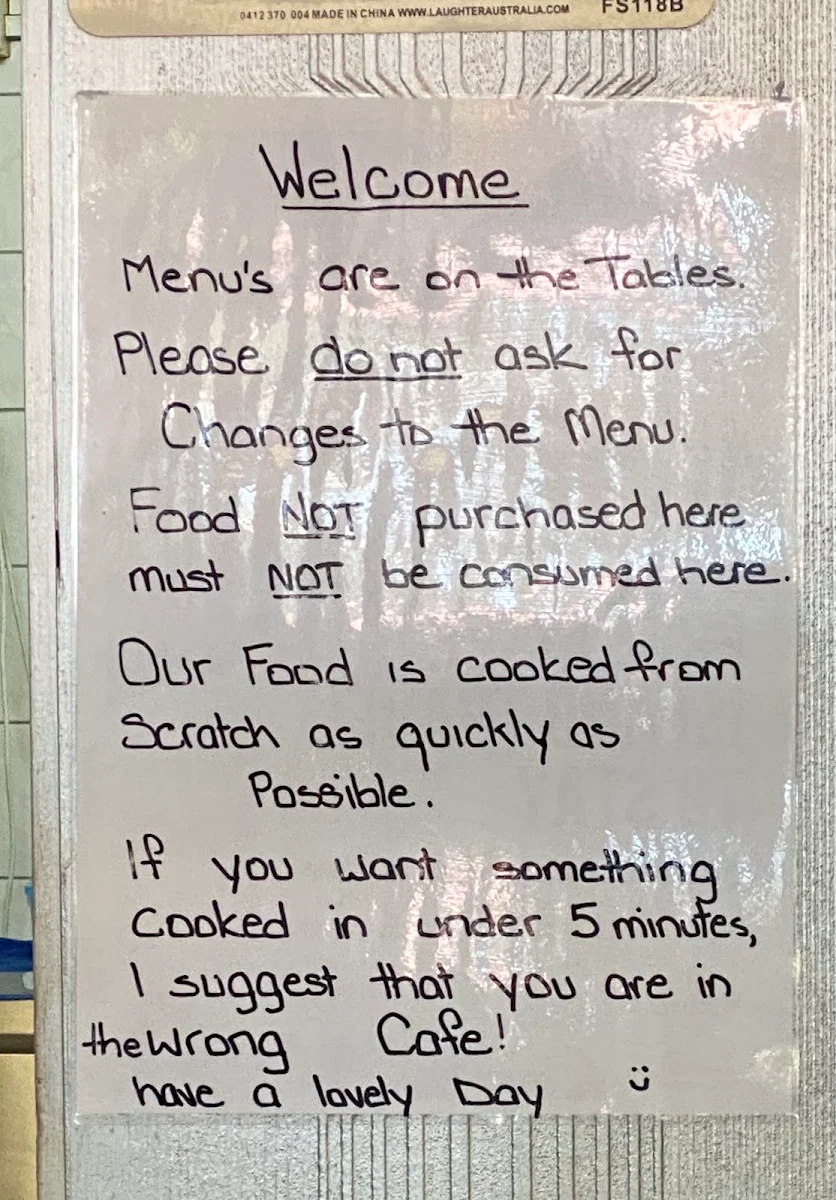 0412 370 004 MADE IN CHINA WWW.LAUGHTERAUSTRALIA.COM FS118B
Welcome
Menu's are on the Tables.
Please do not ask for
Changes to the Menu.
Food NOT purchased here
must NOT be consumed here.
Our Food is cooked from
Scratch as quickly as
Possible.
If you want something
Cooked in under 5 minutes,
I suggest that you are in
the Wrong Cafe!
have a lovely Day